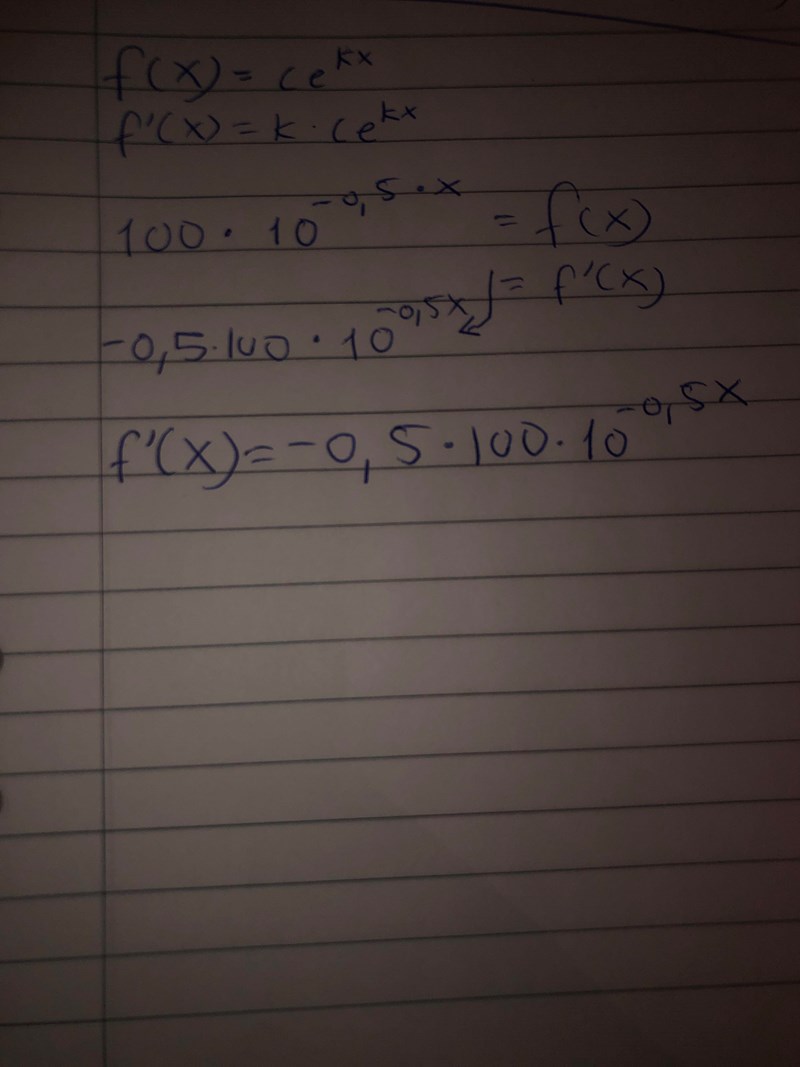 f(x) = ce^{kx}
f'(x) = k · ce^{kx}
100 · 10^{-0,5 · x} = f(x)
= f'(x)
-0,5 · 100 · 10^{-0,5x}
f'(x) = -0,5 · 100 · 10^{-0,5x}